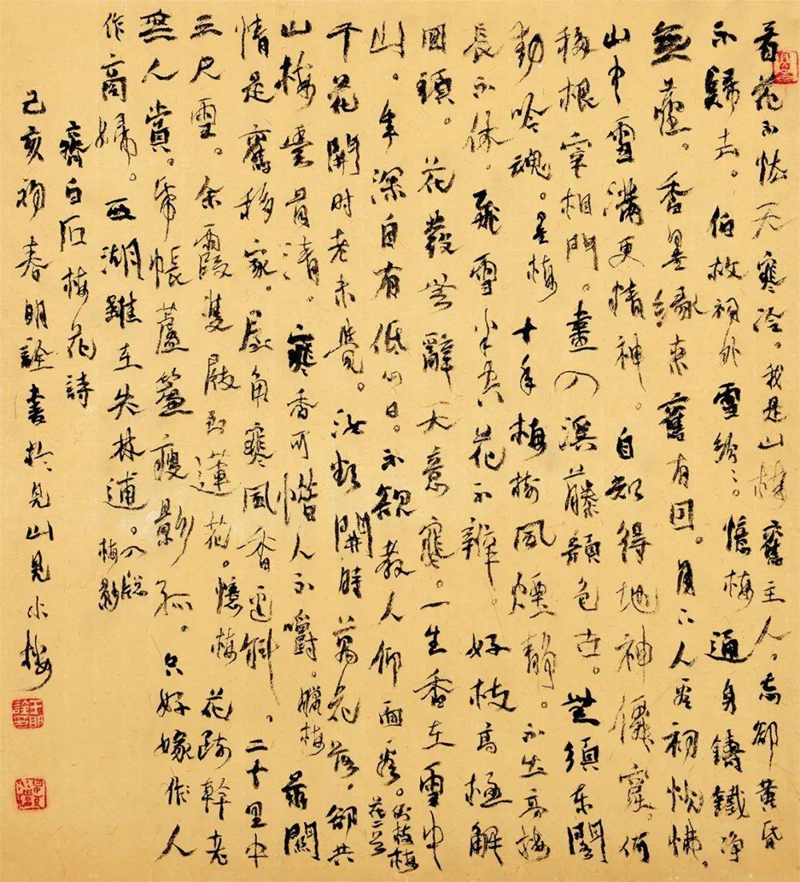 看花不怯天寒冷。我是山梅舊主人。忘卻黃昏
不歸去。伯枚祠外雪紛紛。憶梅 通身鑄鐵淨
無塵。香暈緣來舊有因。月下人看初恍惚。
山中雪滿更精神。自知得地神儂窟。何
移根宰相門。畫入溪藤顏色古。無須東閣
動吟魂。墨梅 十年梅樹風煙靜。不出高樓
長不休。飛雪半天花不辨。好枝高極解
回頭。花發無辭天意寒。一生香在雪中
山。年深自有低何日。不親教人仰面看。倒枝梅花二首
千花開時老未覺。汝開時萬花落。卻共
山梅雲骨清。寒香可惜人不嚼。臘梅
情是舊移家。屋角寒風香逕斜。二十里中
三尺雪。余霞雙屐到蓮花。憶梅 花疏幹老
無人賞。紙帳蘆簾瘦影孤。只好嫁作人
作商婦。西湖誰主失林逋。梅影
齊白石梅花詩
己亥初春明詮書於見山見水樓